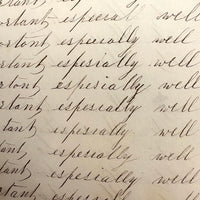 ortant especial well
ortant especially well
ortant espesially well
ortant espesially well
ortant espesially well
rtant espesially well
tant, espesially well
tant, espesially well
tant especially well